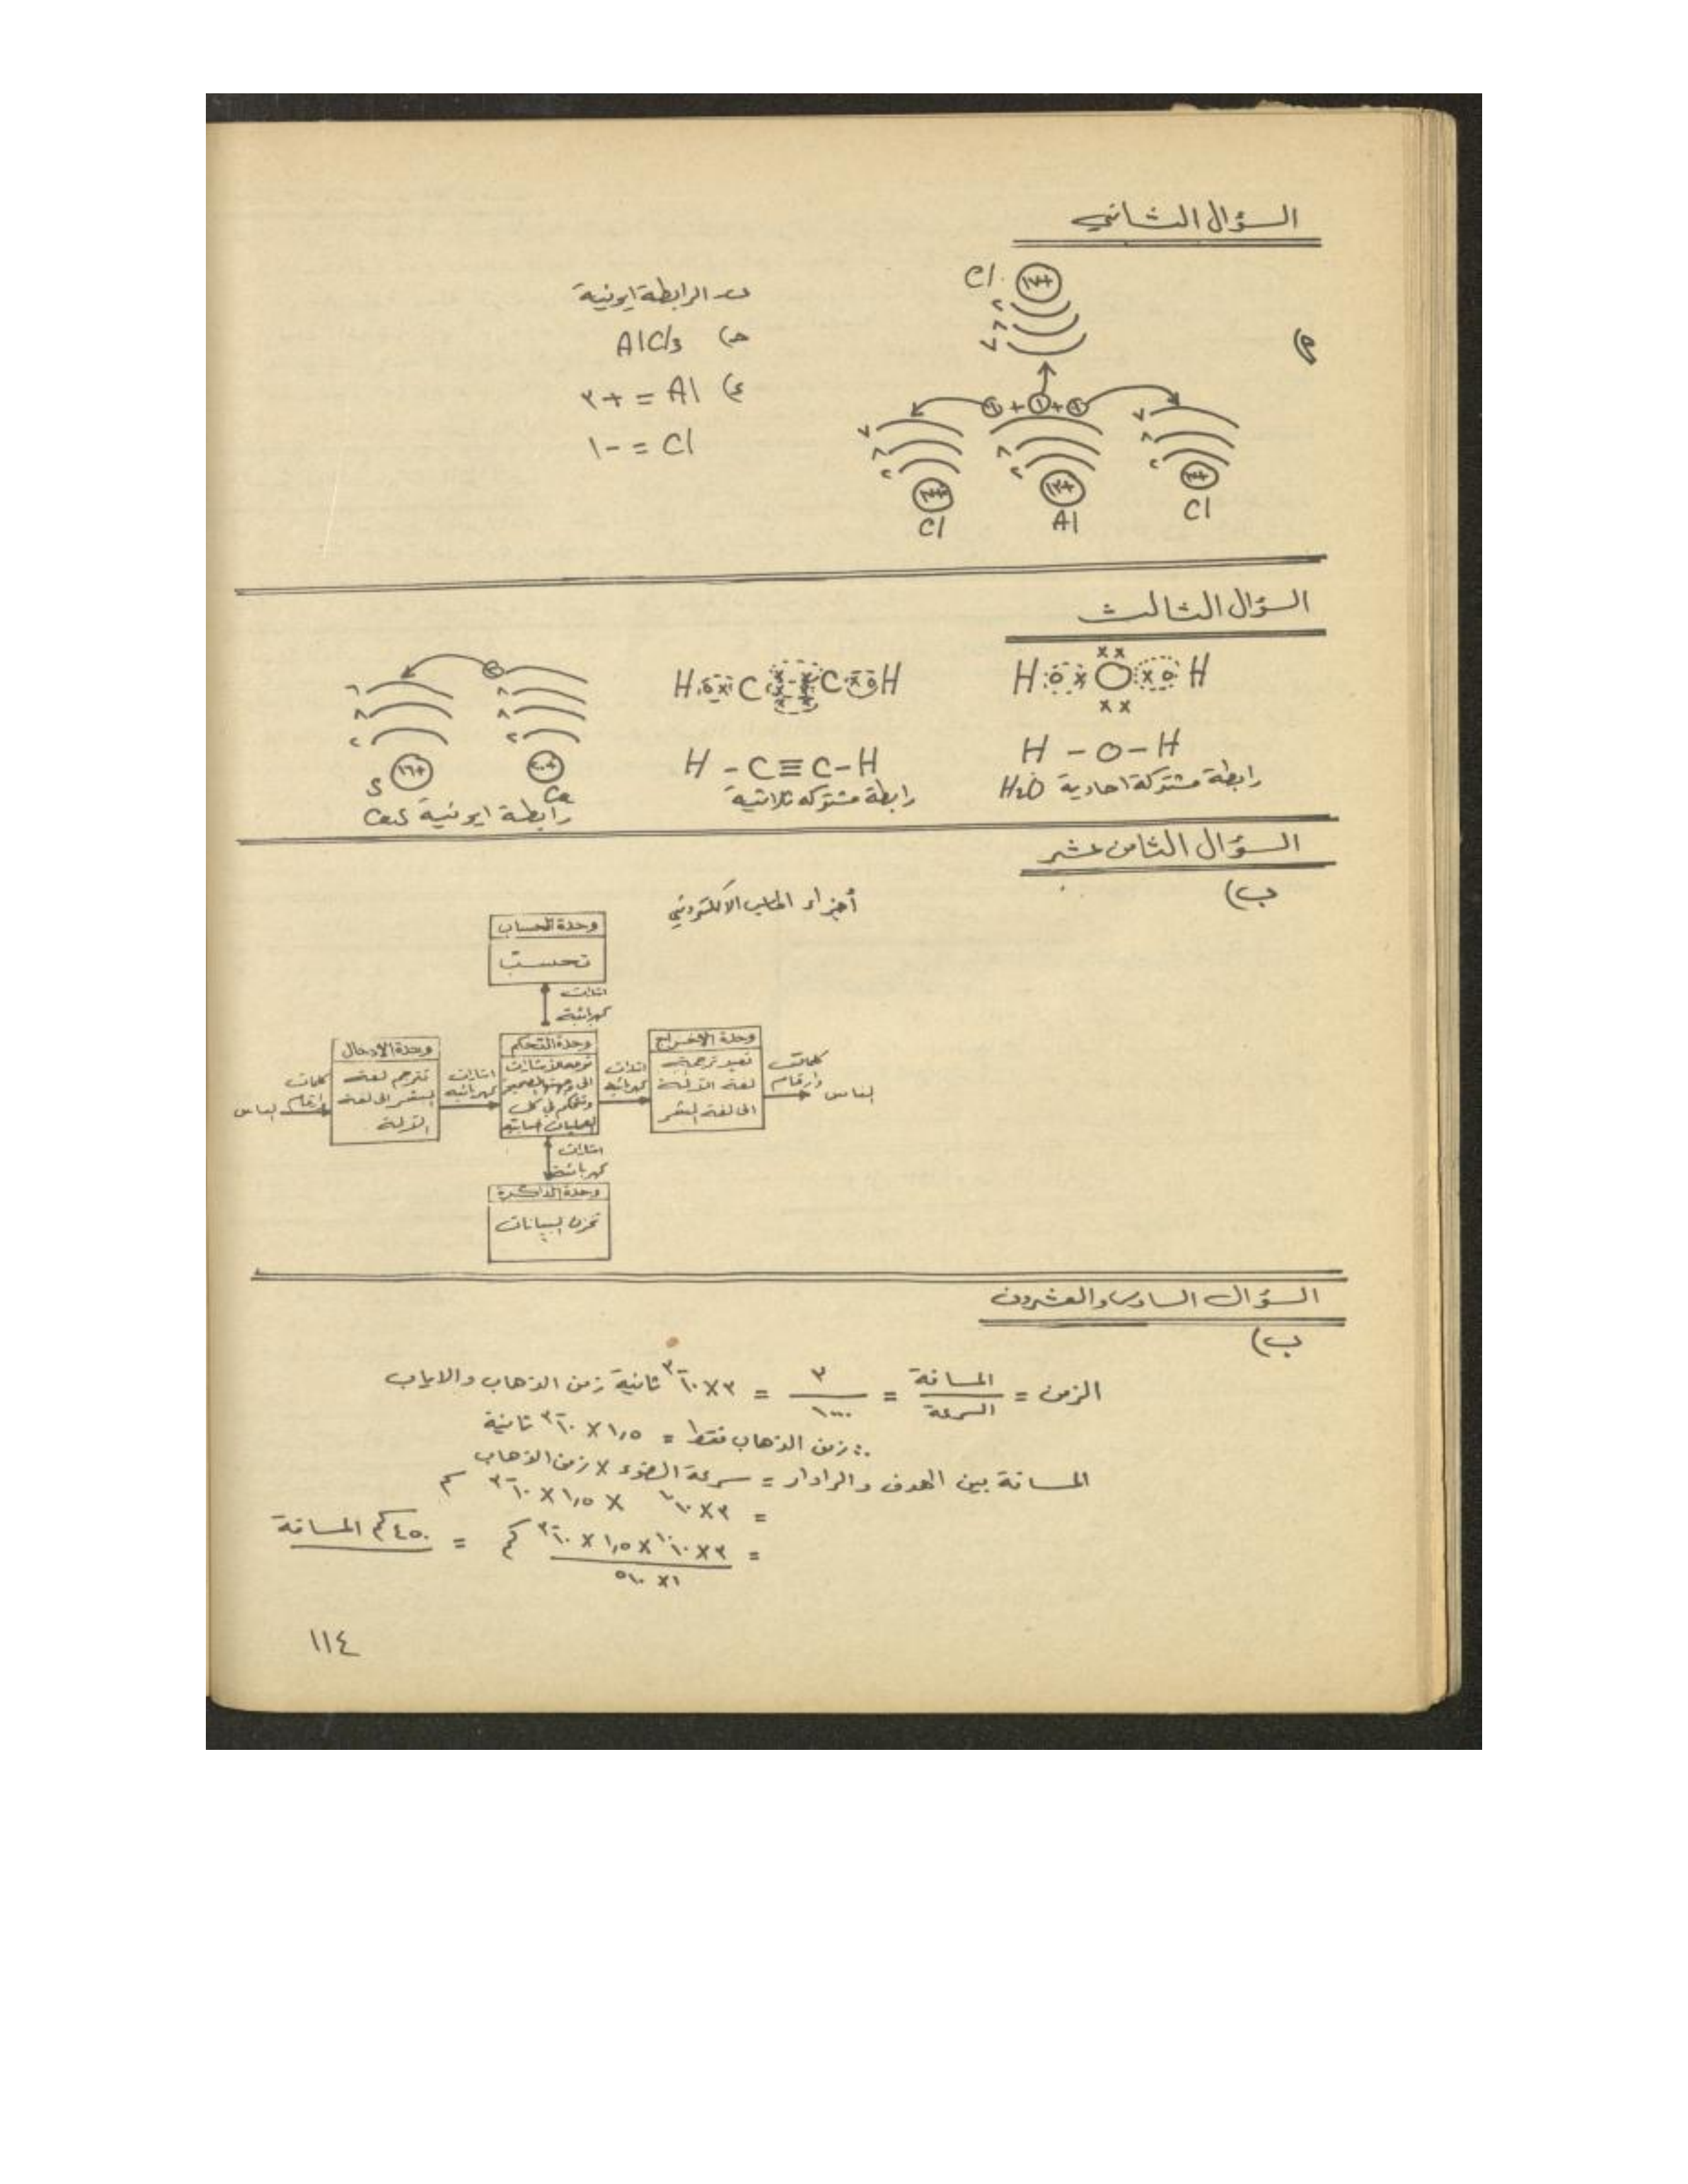 السؤال الثاني
Cl +١٧
٢
٨
٧
٧ ٨ ٢ +١٧ Cl
١ + ١ + ١
٨ ٢ +١٣ Al
٧ ٨ ٢ +١٧ Cl
ب- الرابطة ايونية
ج) AlCl3
ء) Al = +٣
Cl = -١
السؤال الثالث
H o x O x o H
H - O - H
رابطة مشتركة احادية H2O
H o x C C x o H
H - C ≡ C - H
رابطة مشتركة ثلاثية
٨ ٨ ٢ +٢٠ Ca
٦ ٨ ٢ +١٦ S
رابطة ايونية CaS
السؤال الثامن عشر
ب)
أجزاء الحاسب الالكتروني
وحدة الحساب
تحسب
اشارات
كهربائية
الناس
كلمات
وارقام
وحدة الادخال
تترجم لغة
البشر الى لغة
الآلة
اشارات
كهربائية
وحدة التحكم
توجه الاشارات
الى وجهتها الصحيحة
وتتحكم في كل
العمليات الحسابية
اشارات
كهربائية
وحدة الاخراج
تعيد ترجمة
لغة الآلة
الى لغة البشر
كلمات
وارقام
الناس
اشارات
كهربائية
وحدة الذاكرة
تخزن البيانات
السؤال السادس والعشرون
ب)
الزمن = المسافة / السرعة = ٣ / ١٠٠٠ = ٣ × ١٠-٣ ثانية زمن الذهاب والاياب
∴ زمن الذهاب فقط = ١,٥ × ١٠-٣ ثانية
المسافة بين الهدف والرادار = سرعة الضوء × زمن الذهاب
= ٣ × ١٠١٠ × ١,٥ × ١٠-٣ سم
= ٣ × ١٠١٠ × ١,٥ × ١٠-٣ / ١ × ١٠٥ كم = ٤٥٠ كم المسافة
١١٤